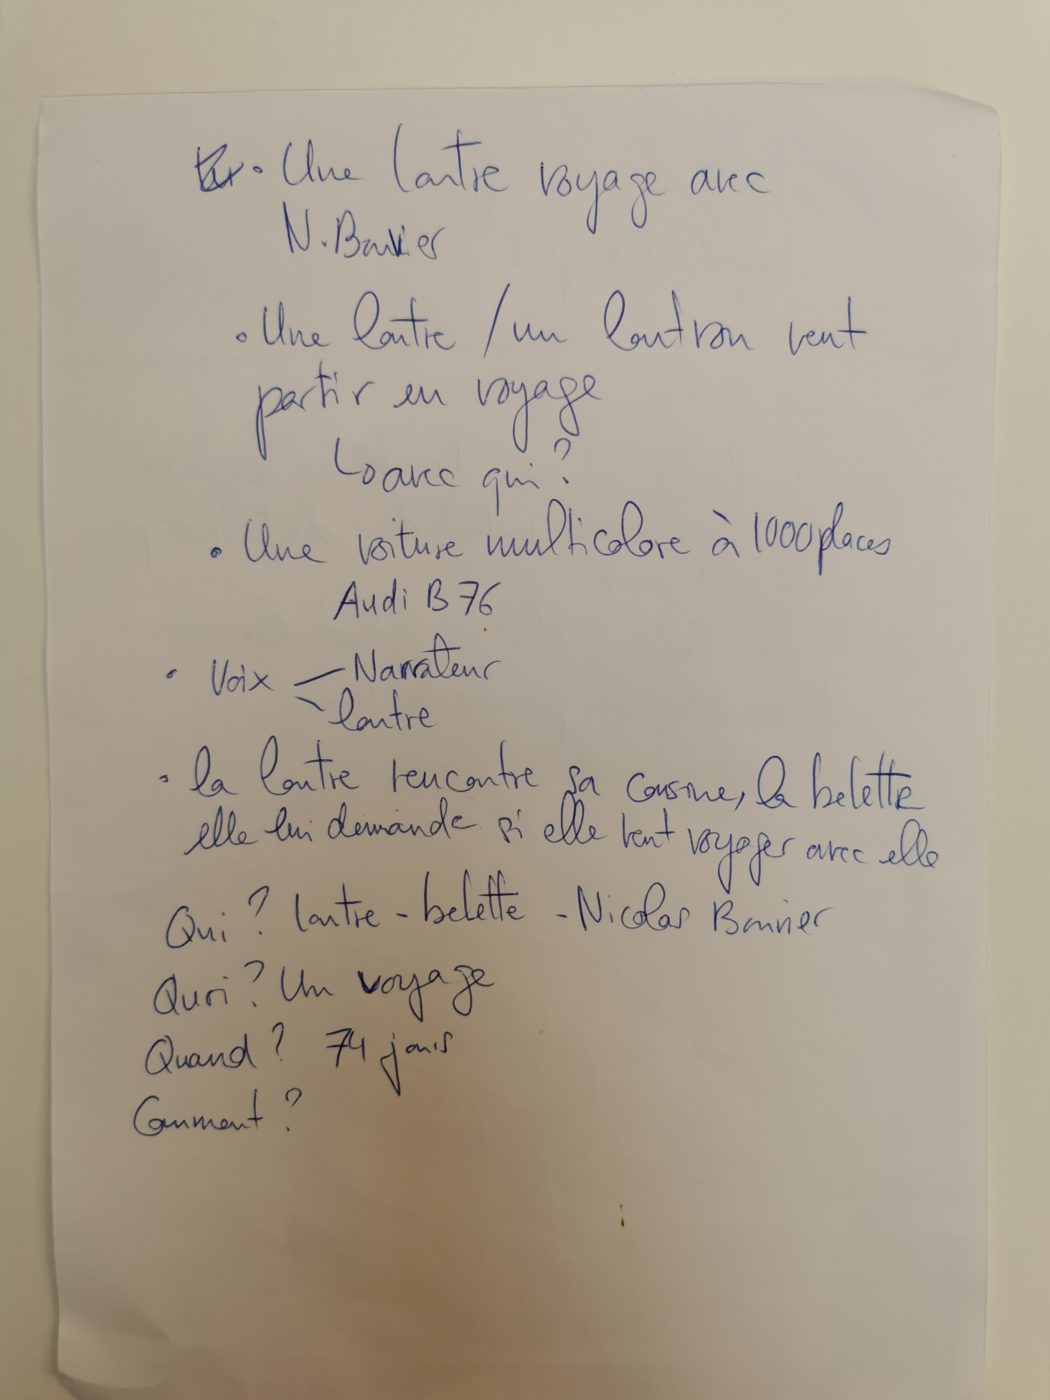 • Une loutre voyage avec
N. Bouvier
• Une loutre / un loutron veut
partir en voyage
↳ avec qui ?
• Une voiture multicolore à 1000 places
Audi B 76
• Voix — Narrateur
loutre
• la loutre rencontre sa cousine, la belette
elle lui demande si elle veut voyager avec elle
Qui ? loutre - belette - Nicolas Bouvier
Quoi ? Un voyage
Quand ? 74 jours
Comment ?